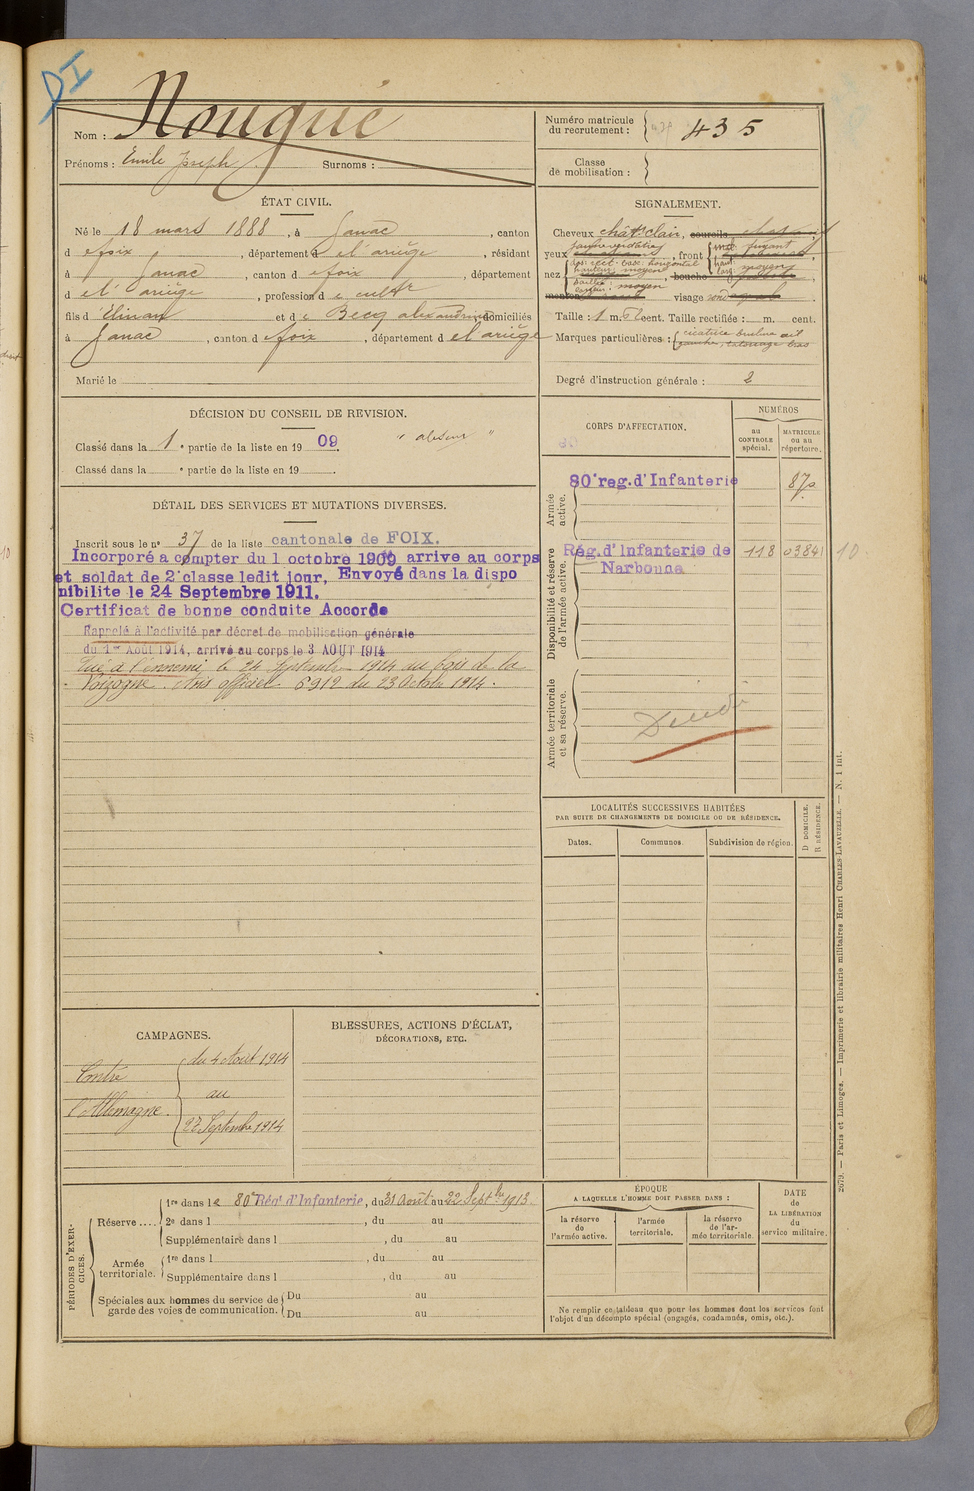 DI
Nom : Nougué
Prénoms : Emile Joseph. Surnoms :
Numéro matricule du recrutement : 435
Classe de mobilisation :
ÉTAT CIVIL.
Né le 18 mars 1888, à Ganac, canton
d e foix, département d e l'ariège, résidant
à Ganac, canton d e foix, département
d e l'ariège, profession d e cultr
fils d et d e Becq alexandrine domiciliés
à Ganac, canton d e foix, département d e l'ariège
Marié le
SIGNALEMENT.
Cheveux chât. clair, sourcils
yeux, front fuyant
nez dos: rect. base: horizontal hauteur: moyen, bouche haut. larg. moyen
saillie: largeur: moyen
menton visage rond
Taille : 1 m. cent. Taille rectifiée : m. cent.
Marques particulières : cicatrice œil
gauche, tatouage bras
Degré d'instruction générale : 2
DÉCISION DU CONSEIL DE REVISION.
Classé dans la 1e partie de la liste en 1909. " absent "
Classé dans la e partie de la liste en 19 .
DÉTAIL DES SERVICES ET MUTATIONS DIVERSES.
Inscrit sous le no 37 de la liste cantonale de FOIX.
Incorporé a compter du 1 octobre 1909 arrive au corps
et soldat de 2e classe ledit jour, Envoyé dans la dispo
nibilite le 24 Septembre 1911.
Certificat de bonne conduite Accordé
Rappelé à l'activité par décret de mobilisation générale
du 1er Août 1914, arrivé au corps le 3 AOUT 1914
Tué à l'ennemi le 24 Septembre 1914 au bois de la
Voizogne. Avis officiel 6912 du 23 Octobre 1914.
CORPS D'AFFECTATION.
NUMÉROS
au CONTROLE spécial.
MATRICULE ou au répertoire.
Armée active.
80e reg. d'Infanterie
Disponibilité et réserve de l'armée active.
Rég. d'Infanterie de Narbonne 118 03841 10
Armée territoriale et sa réserve.
Décédé
LOCALITÉS SUCCESSIVES HABITÉES
PAR SUITE DE CHANGEMENTS DE DOMICILE OU DE RÉSIDENCE.
Dates.
Communes.
Subdivision de région.
D DOMICILE.
R RÉSIDENCE.
CAMPAGNES.
Contre l'Allemagne
du 4 Août 1914
au
22 Septembre 1914
BLESSURES, ACTIONS D'ÉCLAT,
DÉCORATIONS, ETC.
PÉRIODES D'EXERCICES.
Réserve .... 1re dans le 80e Régt d'Infanterie, du 31 Août au 22 Septbre 1913.
2e dans l , du au
Supplémentaire dans l , du au
Armée territoriale. 1re dans l , du au
Supplémentaire dans l , du au
Spéciales aux hommes du service de garde des voies de communication. Du au
Du au
ÉPOQUE
A LAQUELLE L'HOMME DOIT PASSER DANS :
la réserve de l'armée active.
l'armée territoriale.
la réserve de l'armée territoriale.
DATE de LA LIBÉRATION du service militaire.
Ne remplir ce tableau que pour les hommes dont les services font
l'objet d'un décompte spécial (engagés, condamnés, omis, etc.).
2679. — Paris et Limoges. — Imprimerie et librairie militaires Henri CHARLES-LAVAUZELLE. — N. 1 int.